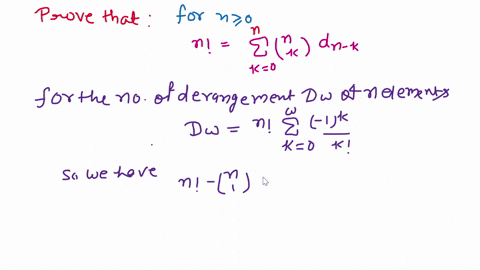 Prove that: for n≥0
n! = n Σ k=0 (n k) d n-k
for the no. of derangement Dω of n elements
Dω = n! ω Σ k=0 (-1)^k / k!
So we have n! - (n 1)